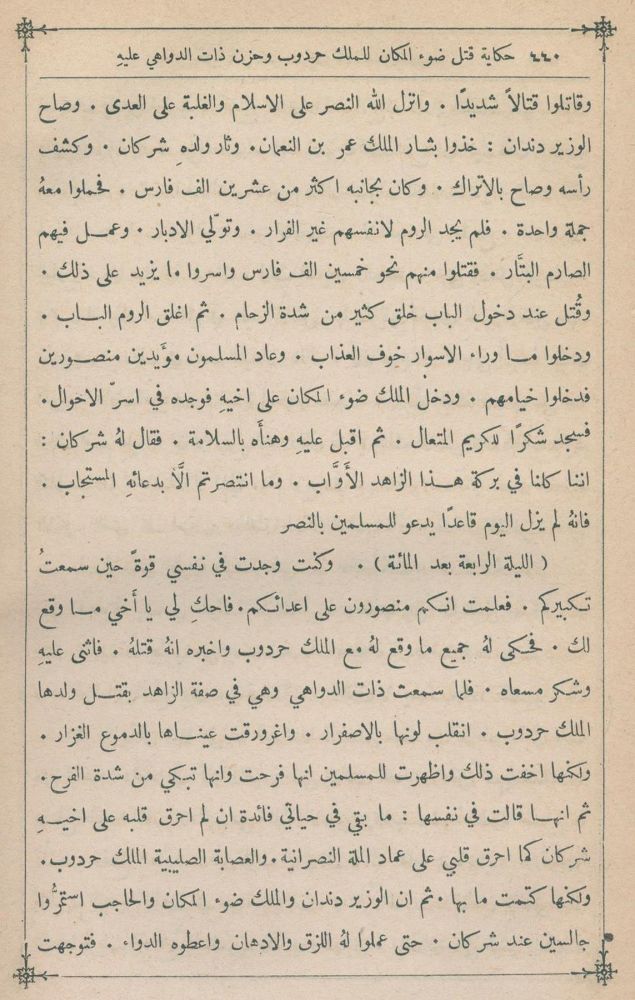 ٤٤٠ حكاية قتل ضوء المكان للملك حردوب وحزن ذات الدواهي عليه
وقاتلوا قتالاً شديدًا . وانزل الله النصر على الاسلام والغلبة على العدى . وصاح
الوزير دندان : خذوا بثار الملك عمر بن النعمان. وثار ولدهِ شركان . وكشف
رأسه وصاح بالاتراك . وكان بجانبه اكثر من عشرين الف فارس . فحملوا معهُ
حملة واحدة . فلم يجد الروم لانفسهم غير الفرار . وتولّي الادبار . وعمل فيهم
الصارم البتَّار . فقتلوا منهم نحو خمسين الف فارس واسروا ما يزيد على ذلك .
وقُتل عند دخول الباب خلق كثير من شدة الزحام . ثم اغلق الروم الباب .
ودخلوا ما وراء الاسوار خوف العذاب . وعاد المسلمون مؤيدين منصورين
فدخلوا خيامهم . ودخل الملك ضوء المكان على اخيهِ فوجده في اسرّ الاحوال.
فسجد شكرًا للكريم المتعال . ثم اقبل عليهِ وهنأَه بالسلامة . فقال لهُ شركان :
اننا كلنا في بركة هذا الزاهد الأَوَّاب . وما انتصرتم الَّا بدعائهِ المستجاب .
فانهُ لم يزل اليوم قاعدًا يدعو للمسلمين بالنصر
( الليلة الرابعة بعد المائة ) . وكنت وجدت في نفسي قوةً حين سمعتُ
تكبيركم . فعلمت انكم منصورون على اعدائكم. فاحكِ لي يا أخي ما وقع
لك . فحكى لهُ جميع ما وقع لهُ مع الملك حردوب واخبره انهُ قتلهُ . فاثنى عليهِ
وشكر مسعاه . فلما سمعت ذات الدواهي وهي في صفة الزاهد بقتل ولدها
الملك حردوب . انقلب لونها بالاصفرار . واغرورقت عيناها بالدموع الغزار .
ولكنها اخفت ذلك واظهرت للمسلمين انها فرحت وانها تبكي من شدة الفرح.
ثم انها قالت في نفسها : ما بقي في حياتي فائدة ان لم احرق قلبه على اخيهِ
شركان كما احرق قلبي على عماد الملة النصرانية. والعصابة الصليبية الملك حردوب.
ولكنها كتمت ما بها . ثم ان الوزير دندان والملك ضوء المكان والحاجب استمرُّوا
جالسين عند شركان . حتى عملوا لهُ اللزق والادهان واعطوه الدواء . فتوجهت